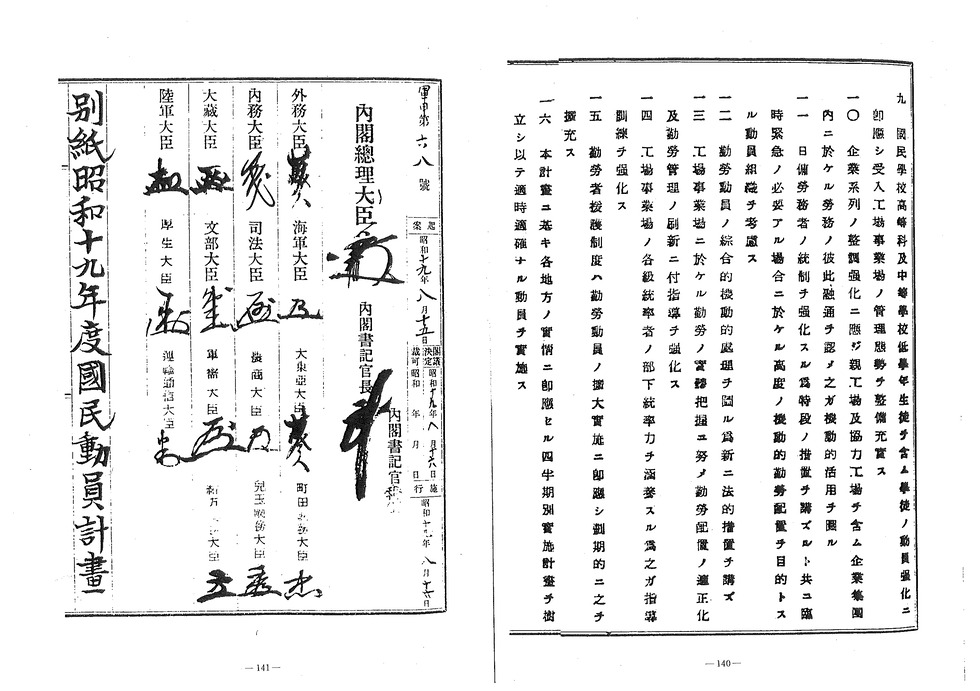 九 國民學校高等科及中等學校低學年生徒ヲ含ム學徒ノ動員強化ニ
卽應シ受入工場事業場ノ管理態勢ヲ整備充實ス
一〇 企業系列ノ整備強化ニ應ジ親工場及協力工場ヲ含ム企業集團
內ニ於ケル勞務ノ彼此融通ヲ認メ之ガ機動的活用ヲ圖ル
一一 日傭勞務者ノ統制ヲ強化スル爲特段ノ措置ヲ講ズルト共ニ臨
時緊急ノ必要アル場合ニ於ケル高度ノ機動的勤勞配置ヲ目的トス
ル動員組織ヲ考慮ス
一二 勤勞動員ノ綜合的機動的處理ヲ圖ル爲新ニ法的措置ヲ講ズ
一三 工場事業場ニ於ケル勤勞ノ實態把握ニ努メ勤勞配置ノ適正化
及勤勞管理ノ刷新ニ付指導ヲ強化ス
一四 工場事業場ノ各級統率者ノ部下統率力ヲ涵養スル爲之ガ指導
訓練ヲ強化ス
一五 勤勞者援護制度ハ勤勞動員ノ擴大實施ニ卽應シ劃期的ニ之ヲ
擴充ス
一六 本計畫ニ基キ各地方ノ實情ニ卽應セル四半期別實施計畫ヲ樹
立シ以テ適時適確ナル動員ヲ實施ス
—140—
軍甲第六八號
起案 昭和十九年八月十五日
閣議決定 昭和十九年八月十六日
裁可 昭和 年 月 日
施行 昭和十九年八月十六日
內閣總理大臣
內閣書記官長
內閣書記官
外務大臣
海軍大臣
大東亞大臣
町田國務大臣
內務大臣
司法大臣
農商大臣
兒玉國務大臣
大藏大臣
文部大臣
軍需大臣
陸軍大臣
厚生大臣
運輸通信大臣
別紙昭和十九年度國民動員計畫
—141—